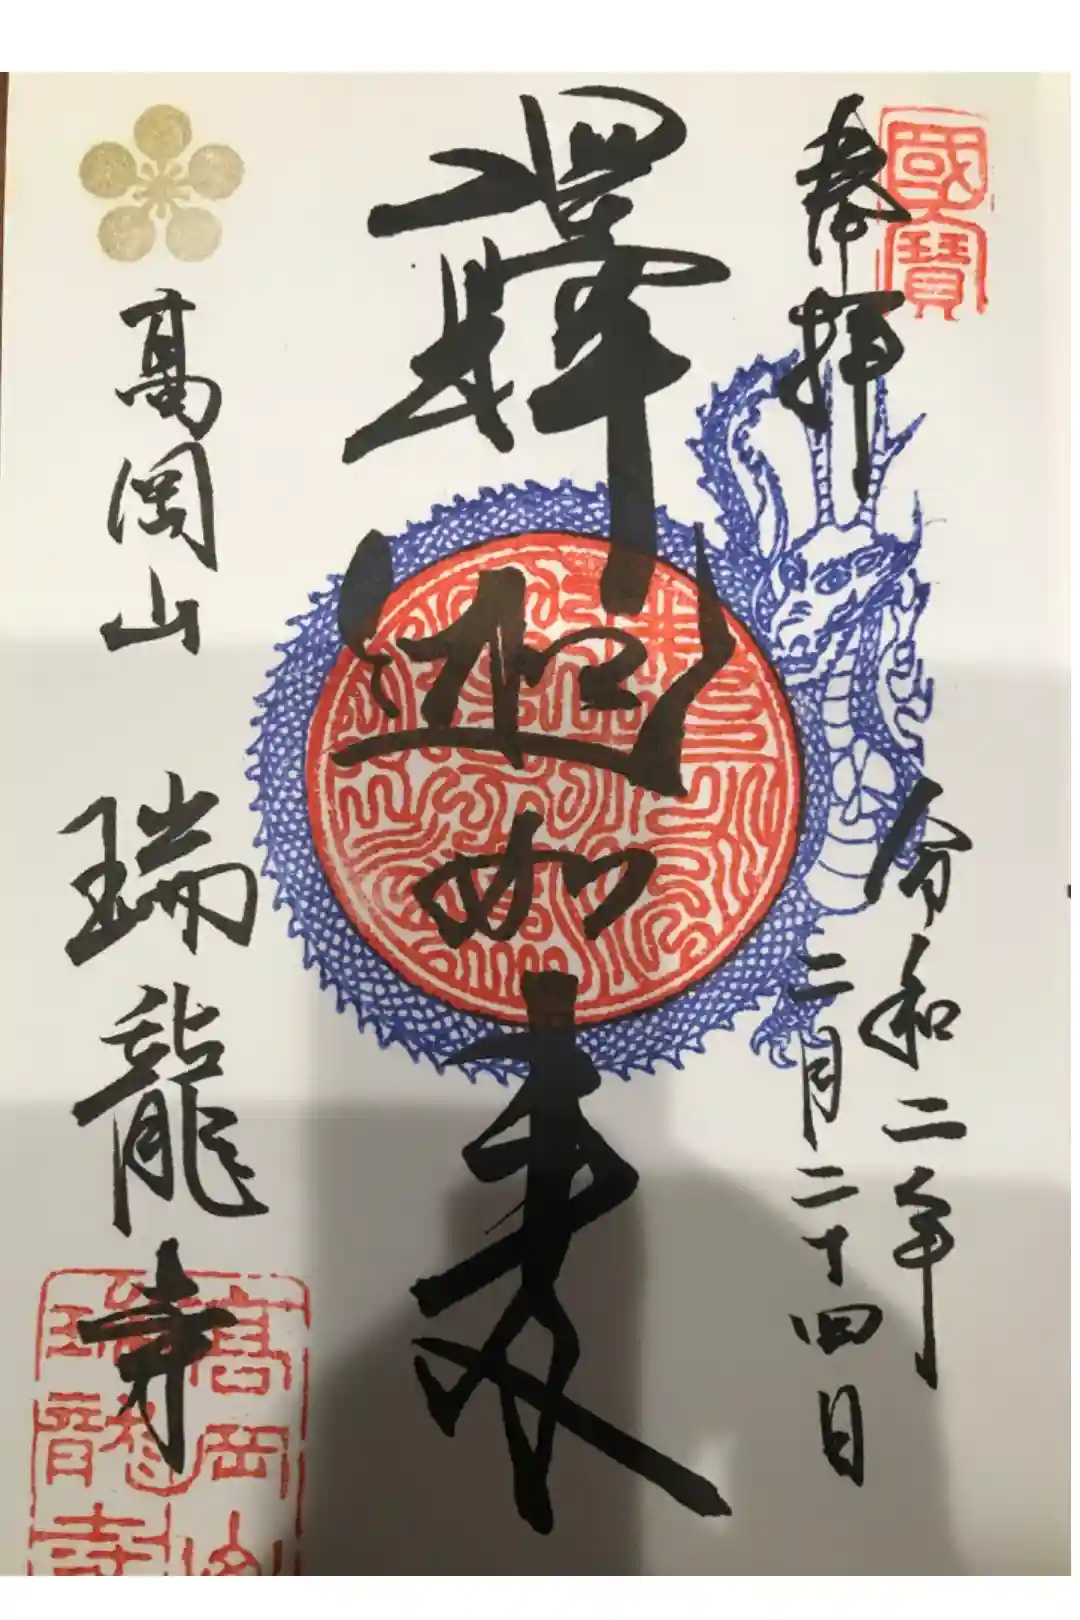 國寶
奉拝
令和二年
二月二十四日
釋迦如来
高岡山
瑞龍寺
高岡山
瑞龍寺